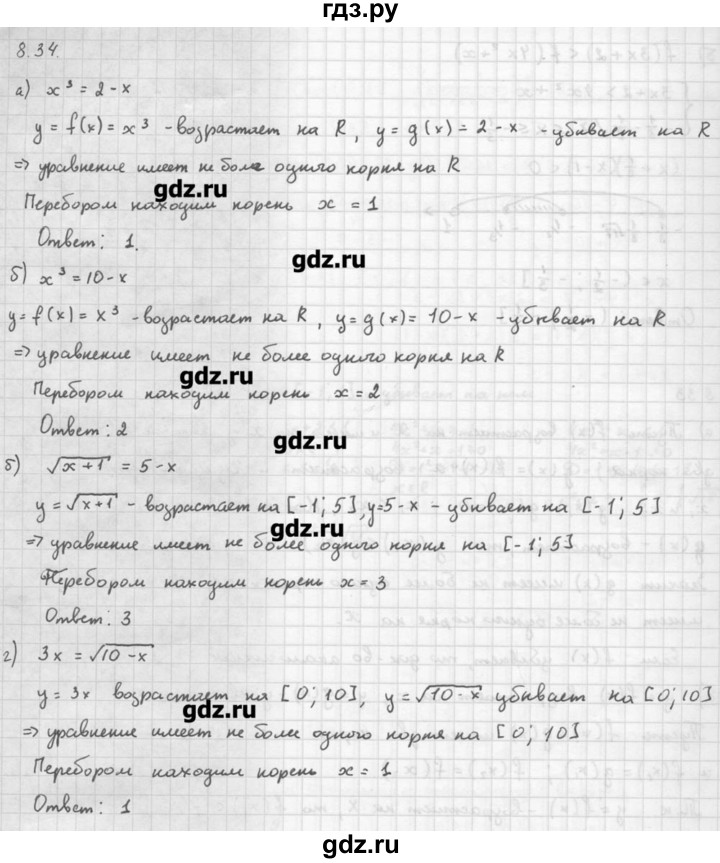 гдз.ру
8.34.
а) x³ = 2 - x
y = f(x) = x³ - возрастает на R, y = g(x) = 2 - x - убывает на R
=> уравнение имеет не более одного корня на R
gdz.ru
Перебором находим корень x = 1
Ответ: 1.
gdz.ru
б) x³ = 10 - x
y = f(x) = x³ - возрастает на R, y = g(x) = 10 - x - убывает на R
=> уравнение имеет не более одного корня на R
gdz.ru
Перебором находим корень x = 2
Ответ: 2
gdz.ru
б) √(x+1) = 5 - x
y = √(x+1) - возрастает на [-1; 5], y = 5 - x - убывает на [-1; 5]
gdz.ru
=> уравнение имеет не более одного корня на [-1; 5]
Перебором находим корень x = 3
Ответ: 3
gdz.ru
г) 3x = √(10 - x)
y = 3x возрастает на [0; 10], y = √(10 - x) убывает на [0; 10]
gdz.ru
=> уравнение имеет не более одного корня на [0; 10]
Перебором находим корень x = 1
gdz.ru
Ответ: 1
gdz.ru